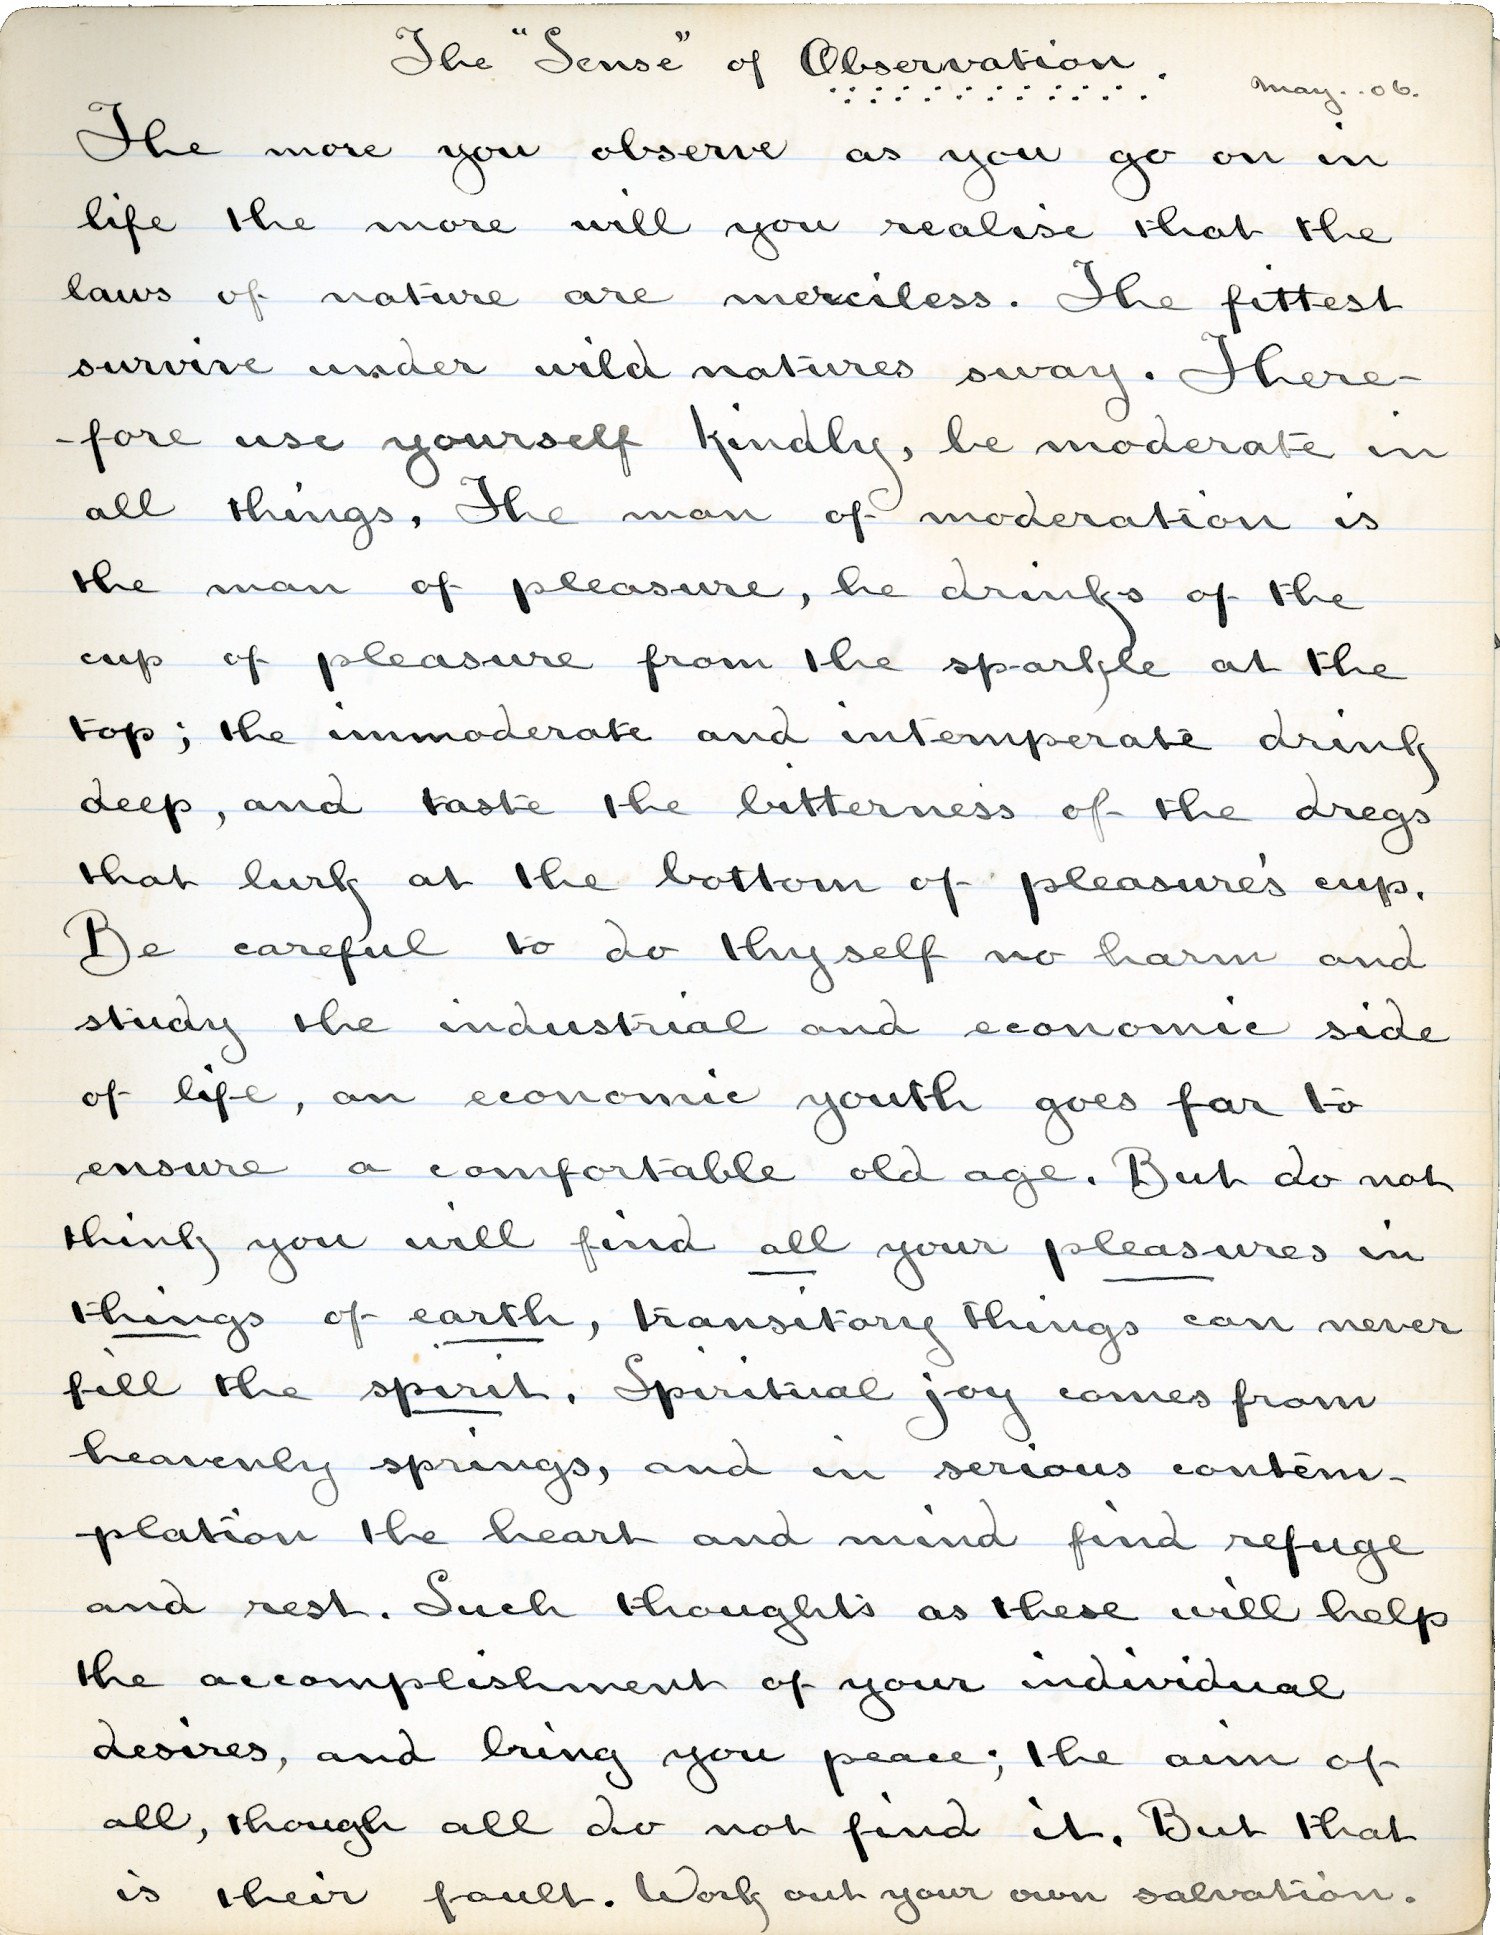 The "Sense" of Observation.
May..06.
The more you observe as you go on in
life the more will you realise that the
laws of nature are merciless. The fittest
survive under wild natures sway. There-
-fore use yourself kindly, be moderate in
all things, The man of moderation is
the man of pleasure, he drinks of the
cup of pleasure from the sparkle at the
top; the immoderate and intemperate drink
deep, and taste the bitterness of the dregs
that lurk at the bottom of pleasure's cup.
Be careful to do thyself no harm and
study the industrial and economic side
of life, an economic youth goes far to
ensure a comfortable old age. But do not
think you will find all your pleasures in
things of earth, transitory things can never
fill the spirit. Spiritual joy comes from
heavenly springs, and in serious contem-
-plation the heart and mind find refuge
and rest. Such thoughts as these will help
the accomplishment of your individual
desires, and bring you peace; the aim of
all, though all do not find it. But that
is their fault. Work out your own salvation.